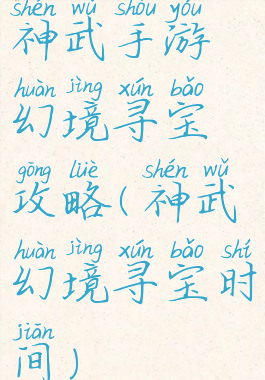 shén wǔ shǒu yóu
神武手游
huàn jìng xún bǎo
幻境寻宝
gōng lüè shén wǔ
攻略(神武
huàn jìng xún bǎo shí
幻境寻宝时
jiān
间)